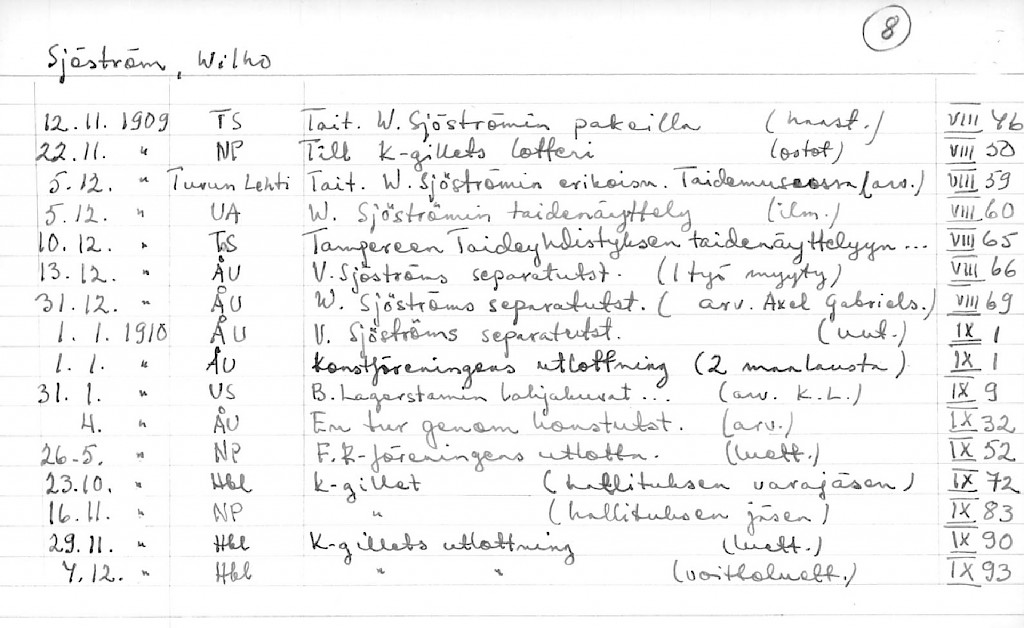 8
Sjöström, Wilho
12.11. 1909 TS Tait. W. Sjöströmin pakeilla (haast.) VIII 46
22.11. " NP Till K-gillets lotteri (ostot) VIII 50
5.12. " Turun Lehti Tait. W. Sjöströmin erikoisn. Taidemuseossa (arv.) VIII 59
5.12. " UA W. Sjöströmin taidenäyttely (ilm.) VIII 60
10.12. " TS Tampereen Taideyhdistyksen taidenäyttelyyn ... VIII 65
13.12. " ÅU V. Sjöströms separatutst. (1 työ myyty) VIII 66
31.12. " ÅU W. Sjöströms separatutst. (arv. Axel Gabriels.) VIII 69
1.1. 1910 ÅU V. Sjöströms separatutst. (uut.) IX 1
1.1. " ÅU Konstföreningens utlottning (2 maalausta) IX 1
31.1. " US B. Lagerstamin lahjakuvat ... (arv. K.L.) IX 9
4. " ÅU En tur genom konstutst. (arv.) IX 32
26.5. " NP F.K-föreningens utlottn. (luett.) IX 52
23.10. " Hbl K-gillet (hallituksen varajäsen) IX 72
16.11. " NP " (hallituksen jäsen) IX 83
29.11. " Hbl K-gillets utlottning (luett.) IX 90
7.12. " Hbl " " (voittoluett.) IX 93